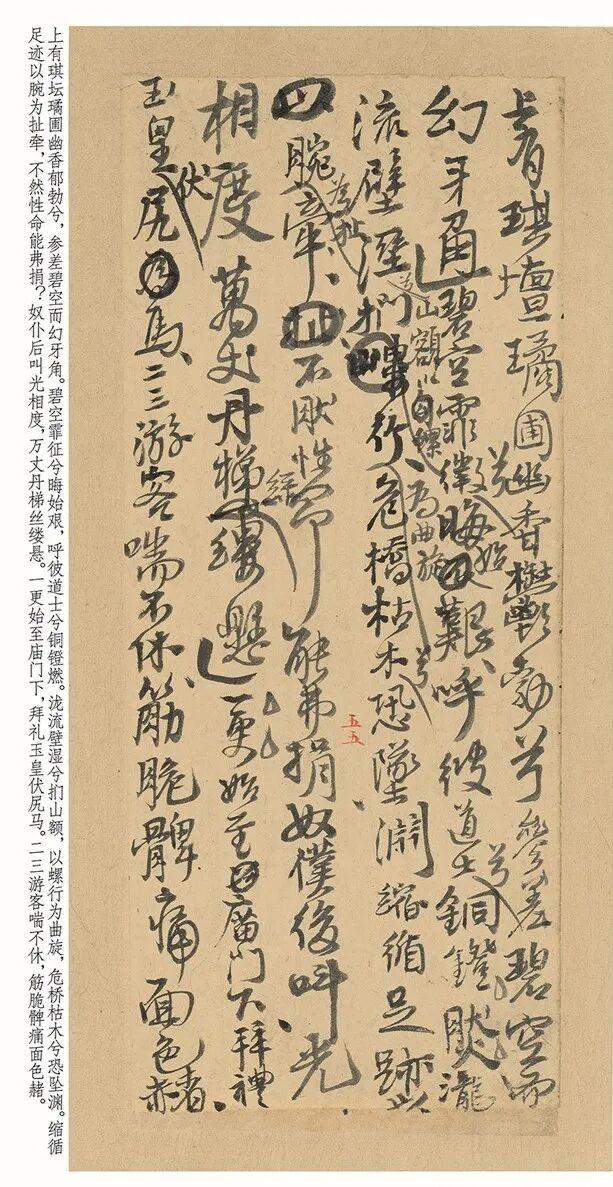 上有琪壇璚圃幽香欝勃兮參差碧空而
幻牙角碧空霏徵兮晦始艱呼彼道士兮銅鐙燃瀧
流壁溼兮捫山額以螺行為曲旋危橋枯木兮恐墜淵縮循足跡以
腕為扯牽不然性命能弗捐奴僕後叫光
相度萬丈丹梯絲縷懸一更始至廟門下拜禮
玉皇伏尻馬二三游客喘不休筋脆髀痛面色赭
五五
上有琪坛璚圃幽香郁勃兮，参差碧空而幻牙角。碧空霏征兮晦始艰，呼彼道士兮铜镫燃。泷流壁湿兮扪山额，以螺行为曲旋，危桥枯木兮恐坠渊。缩循
足迹以腕为扯牵，不然性命能弗捐？奴仆后叫光相度，万丈丹梯丝缕悬。一更始至庙门下，拜礼玉皇伏尻马。二三游客喘不休，筋脆髀痛面色赭。